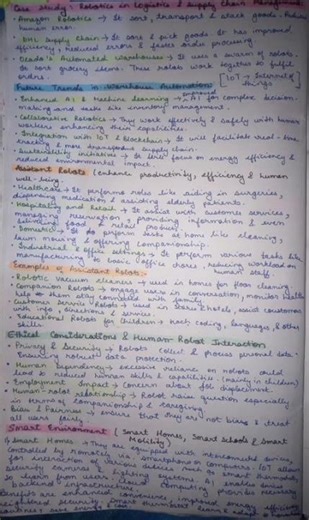 Case Study : Robotics in Logistics & Supply Chain Management
• Amazon Robotics → It sort, transport & stack goods, reduce
human error.
• DHL Supply chain → It sort & pick goods. It has improved
efficiency, reduced errors & faster order processing.
• Ocado's Automated warehouses → It uses a swarm of robots
to sort grocery items. These robots work together to fulfil
orders.
[IoT → Internet of things
Future Trends in Warehouse Automation
• Enhanced AI & Machine learning → AI for complex decision-
making and tasks like inventory management.
• Collaborative Robotics → They work effectively & safely with human
workers enhancing their capabilities.
• Integration with IoT & Blockchain → It will facilitate real-time
tracking & more transparent supply chain.
• Sustainability initiatives → It will focus on energy efficiency &
reduced environmental impact.
Assistant Robots (enhance productivity, efficiency & human
well-being.
• Healthcare → It performs roles like aiding in surgeries,
dispensing medication & assisting elderly patients.
• Hospitality and Retail → It assist with customer services,
managing reservation, providing information & even
delivering food & retail products
• Domestic → It perform tasks at home like cleaning,
lawn mowing & offering companionship.
• Industrial & Office settings → It perform various tasks like
manufacturing & basic office chores, reducing workload on
human staff.
Examples of Assistant Robots:-
• Robotic Vacuum cleaners → used in homes for floor cleaning.
• Companion Robots → engage users in conversation, monitor health
help to them connected with family.
• Customer Service Robots → used in stores & hotels, assist customers
with info, directions & services.
• Educational Robots for Children → teach coding, languages, & other
skills.
Ethical Considerations & Human-Robot Interaction
• Privacy & Security → Robots collect & process personal data.
Ensuring robust data protection.
• Human Dependency → excessive reliance on robots could
lead to reduced human skills & capabilities. (mainly in children)
• Employment Impact → Concern about job displacement.
• Human-robot relationship → Robot raise question especially
in terms of companionship & caregiving
• Bias & Fairness → ensure that they are not bias & treat
all users fairly.
Smart Environment (Smart Homes, Smart Schools & Smart
Mobility)
Smart Homes → They are equipped with interconnected
controlled by remotely via smartphones or computers. IoT allows
for interaction of various devices such as smart thermostats,
security cameras & lighting systems.
to learn from users. Cloud Computing provides
backend infrastructure
Benefits are enhanced convenience, improved energy efficiency